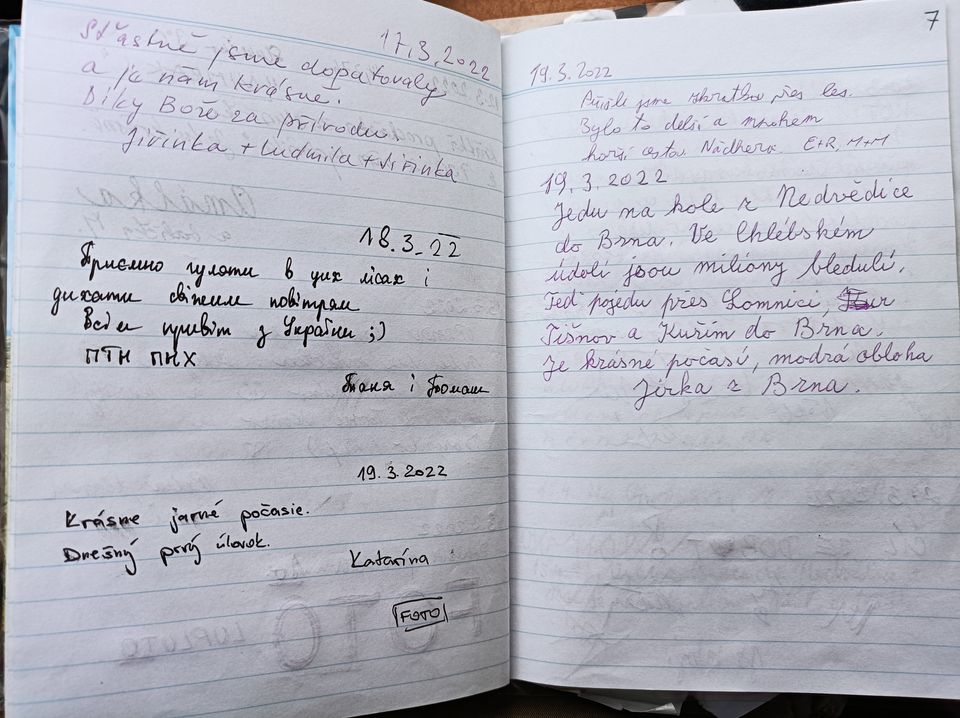 17.3.2022
Šťastně jsme doputovaly
a je nám krásně.
Díky Bože za přírodu.
Jiřinka + Ludmila + Jiřinka
18.3.22
Приємно гуляти в цих лісах і
дихати свіжим повітрям
Всім привіт з України ;)
ПТН ПНХ
Таня і Роман
19.3.2022
Krásne jarné počasie.
Dnešný prvý úlovok.
Katarína
FOTO
7
19.3.2022
Přišli jsme zkratkou přes les.
Bylo to delší a mnohem
horší cestou. Nádhera E+R, M+M
19.3.2022
Jedu na kole z Nedvědice
do Brna. Ve Chlébském
údolí jsou milióny bledulí.
Teď pojedu přes Lomnici,
Tišnov a Kuřim do Brna.
Je krásné počasí, modrá obloha
Jirka z Brna.